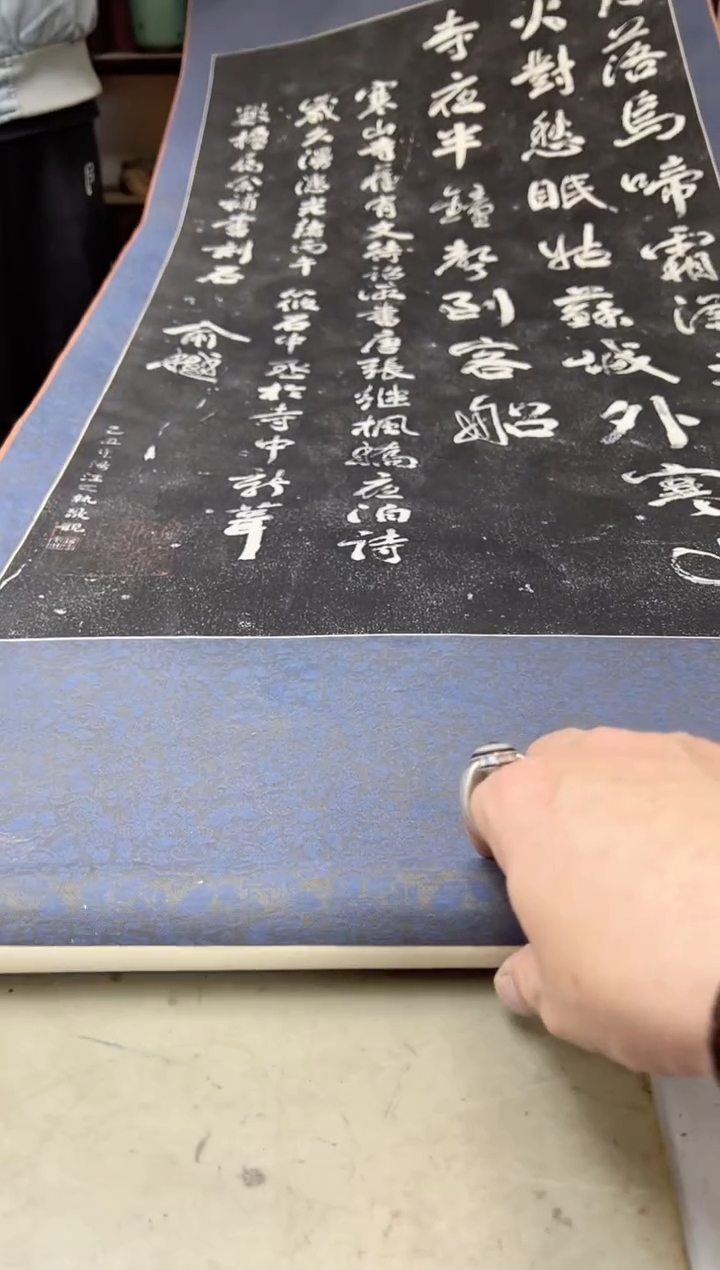 落烏啼霜滿
火對愁眠姑蘇城外寒
寺夜半鐘聲到客船
寒山寺舊有文待詔所書唐張繼楓橋夜泊詩
歲久漫漶光緒丙午 筱石中丞於寺中新葺
數楹屬余補書刻石
俞樾